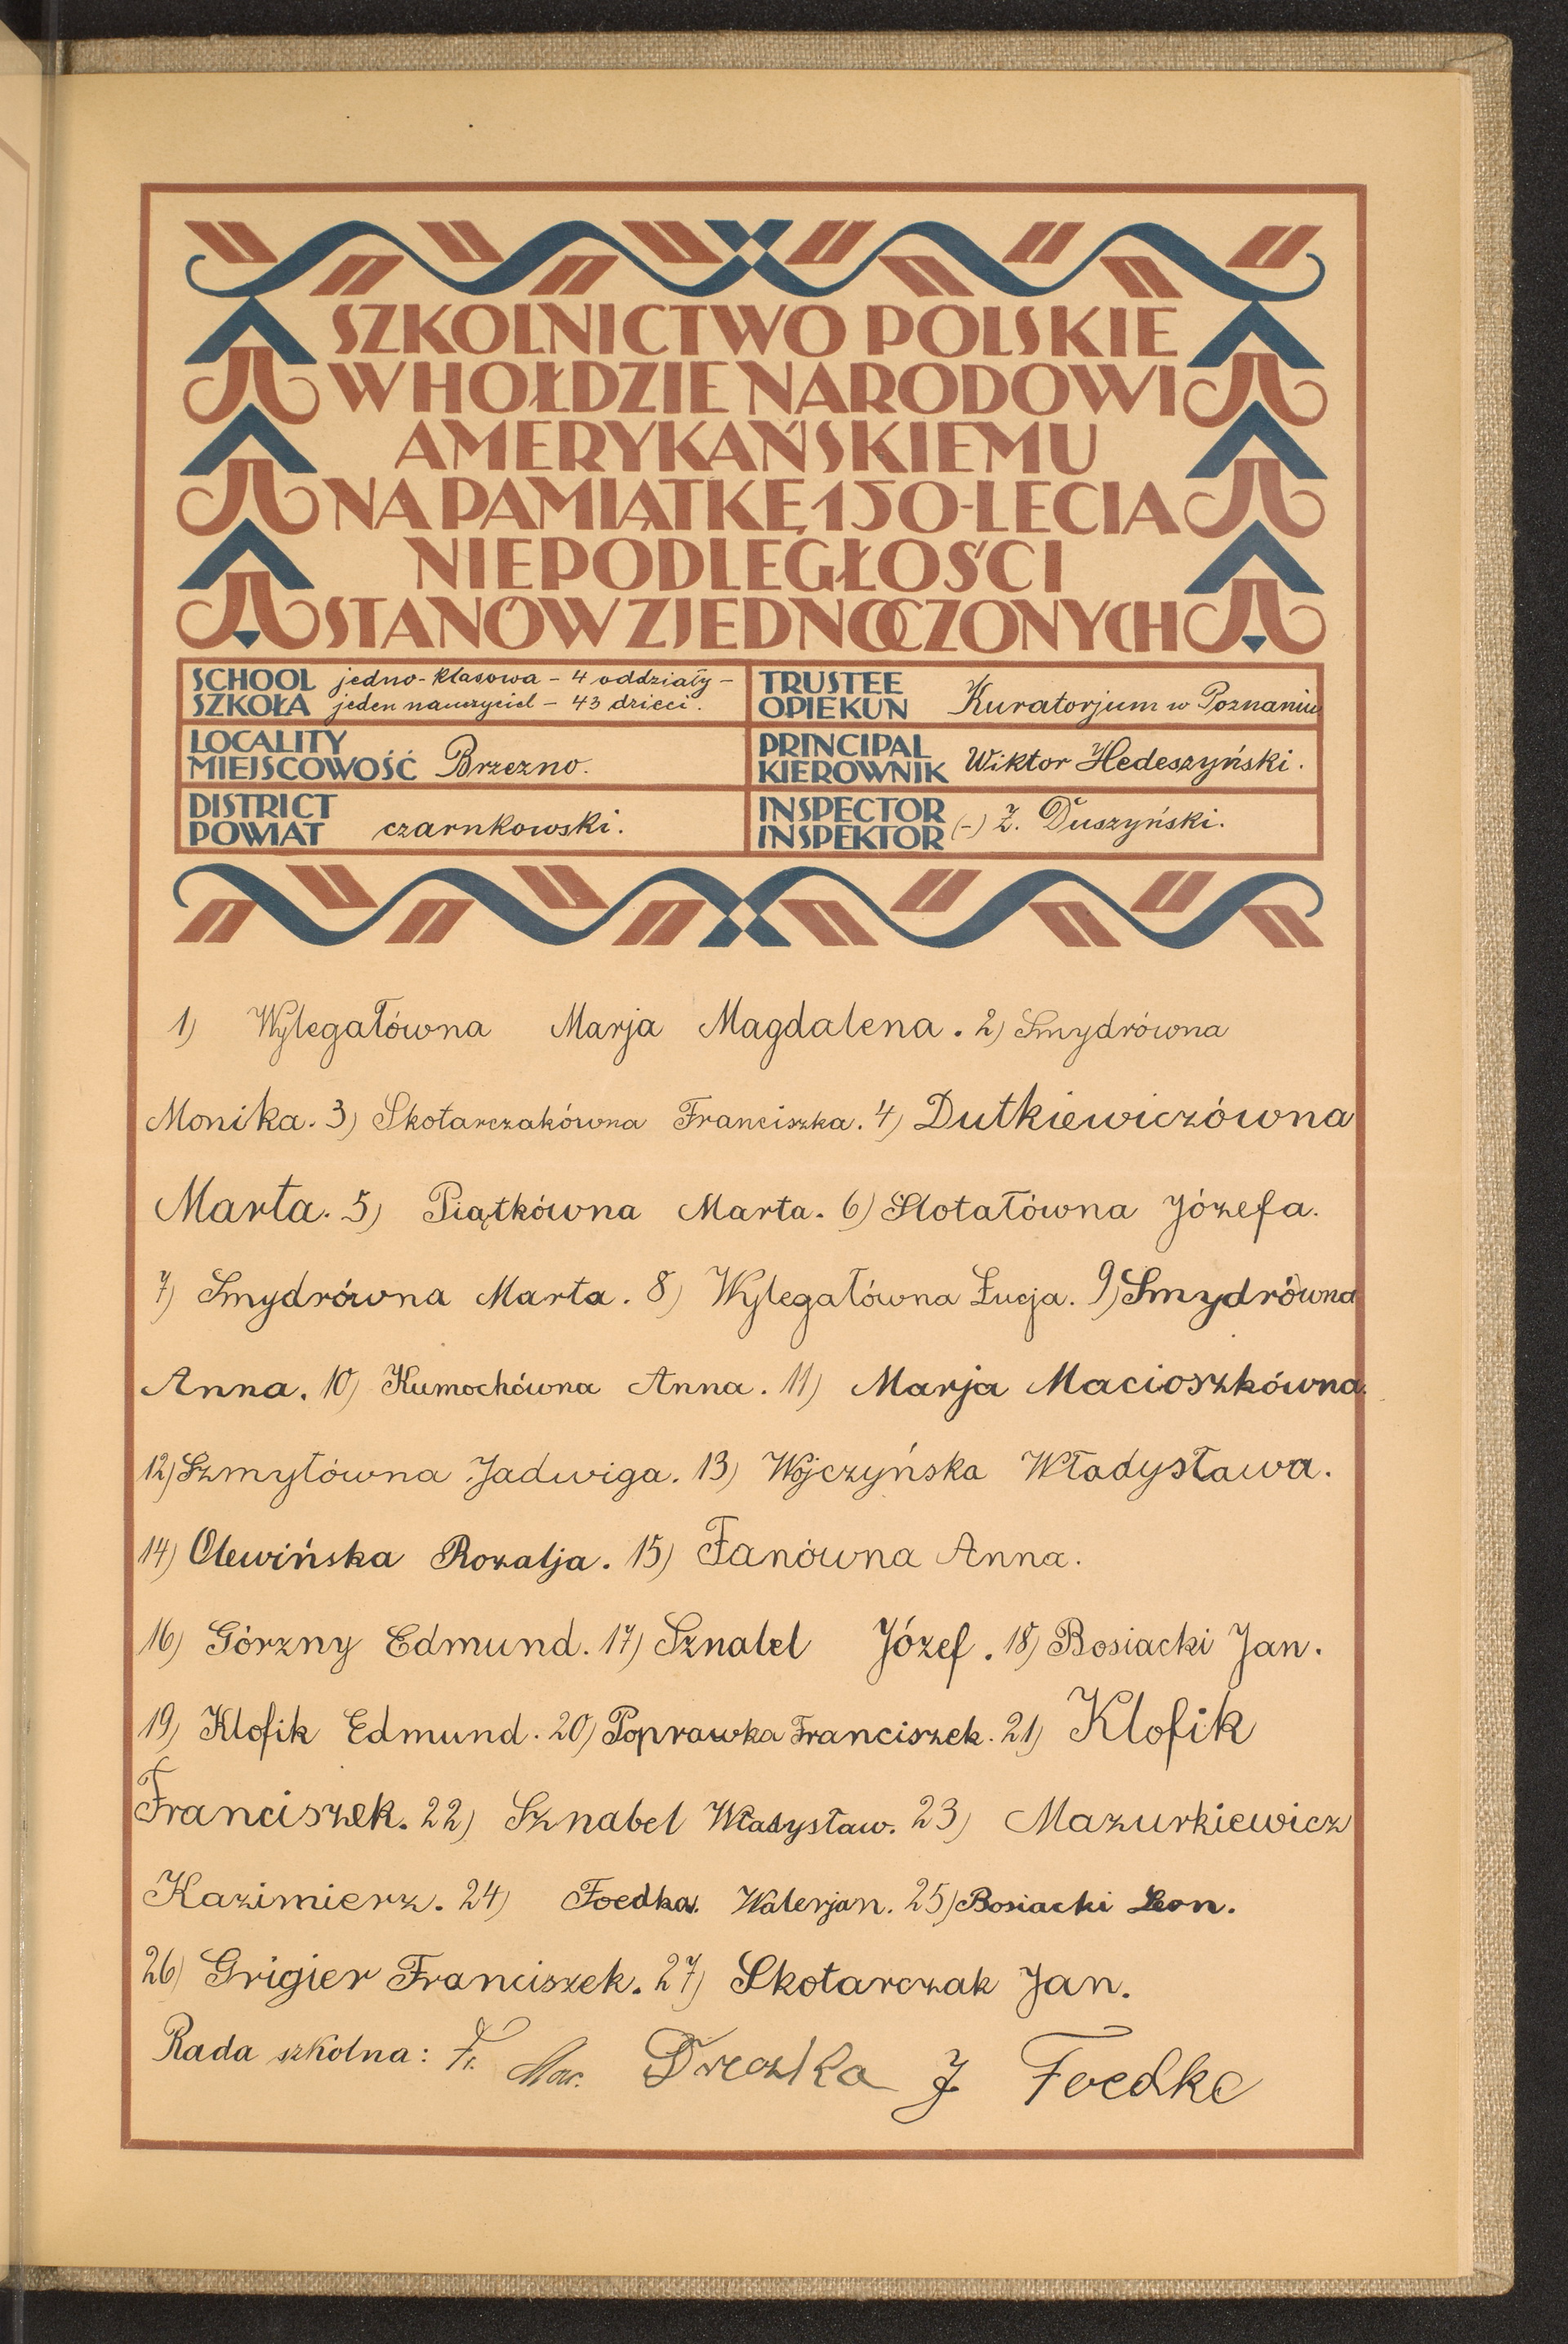 SZKOLNICTWO POLSKIE
W HOŁDZIE NARODOWI
AMERYKAŃSKIEMU
NA PAMIĄTKĘ 150-LECIA
NIEPODLEGŁOŚCI
STANÓW ZJEDNOCZONYCH
SCHOOL SZKOŁA jedno-klasowa – 4 oddziały –
jeden nauczyciel – 43 dzieci.
TRUSTEE OPIEKUN Kuratorjum w Poznaniu
LOCALITY MIEJSCOWOŚĆ Brzezno.
PRINCIPAL KIEROWNIK Wiktor Hedeszyński.
DISTRICT POWIAT czarnkowski.
INSPECTOR INSPEKTOR (-) Z. Duszyński.
1) Wylegałówna Marja Magdalena. 2) Smydrówna
Monika. 3) Skotarczakówna Franciszka. 4) Dutkiewiczówna
Marta. 5) Piątkówna Marta. 6) Slotałówna Józefa.
7) Smydrówna Marta. 8) Wylegałówna Łucja. 9) Smydrówna
Anna. 10) Kumochówna Anna. 11) Marja Macioszkówna.
12) Szmytówna Jadwiga. 13) Wojczyńska Władysława.
14) Olewińska Rozalja. 15) Fanówna Anna.
16) Górzny Edmund. 17) Sznabel Józef. 18) Bosiacki Jan.
19) Klofik Edmund. 20) Poprawka Franciszek. 21) Klofik
Franciszek. 22) Sznabel Władysław. 23) Mazurkiewicz
Kazimierz. 24) Foedka. Walerjan. 25) Bosiacki Leon.
26) Grigier Franciszek. 27) Skotarczak Jan.
Rada szkolna: Fr. J Foedke